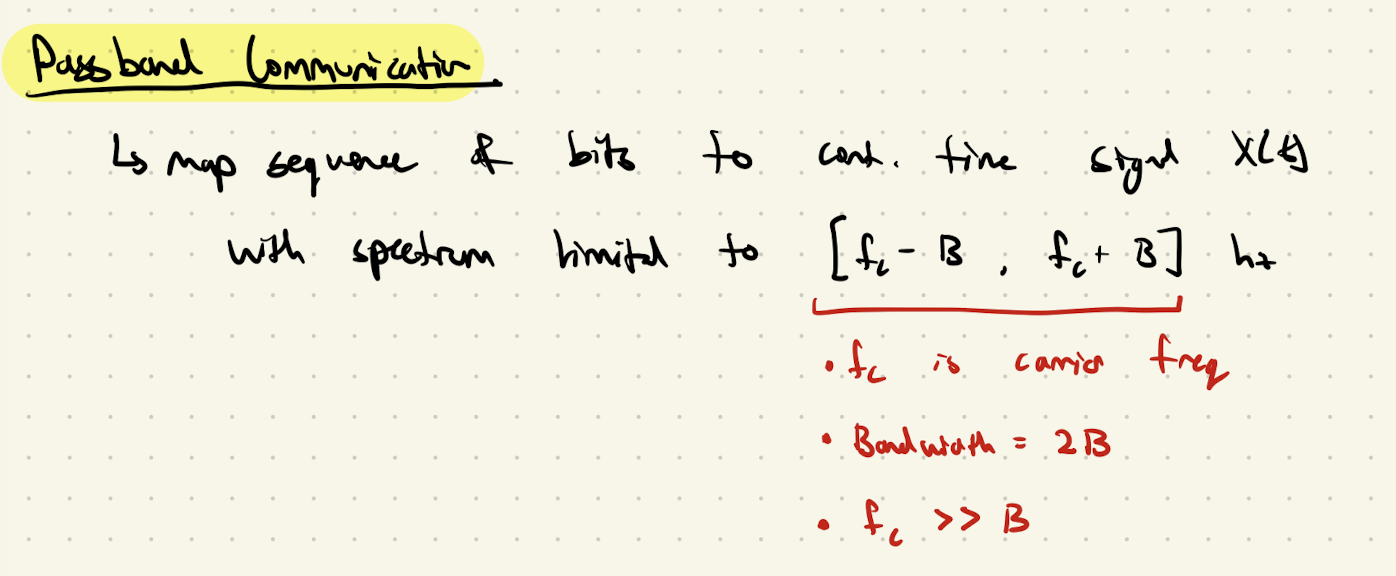 Passband Communication
↳ map sequence of bits to cont. time signal X(t)
with spectrum limited to [f_c - B , f_c + B] hz
• f_c is carrier freq
• Bandwidth = 2B
• f_c >> B